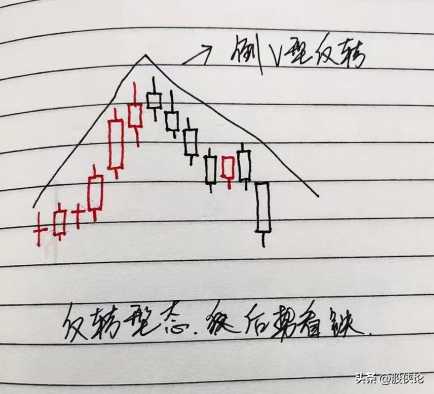 倒V型反转
反转型态. 后势看跌.
头条 @股侠论